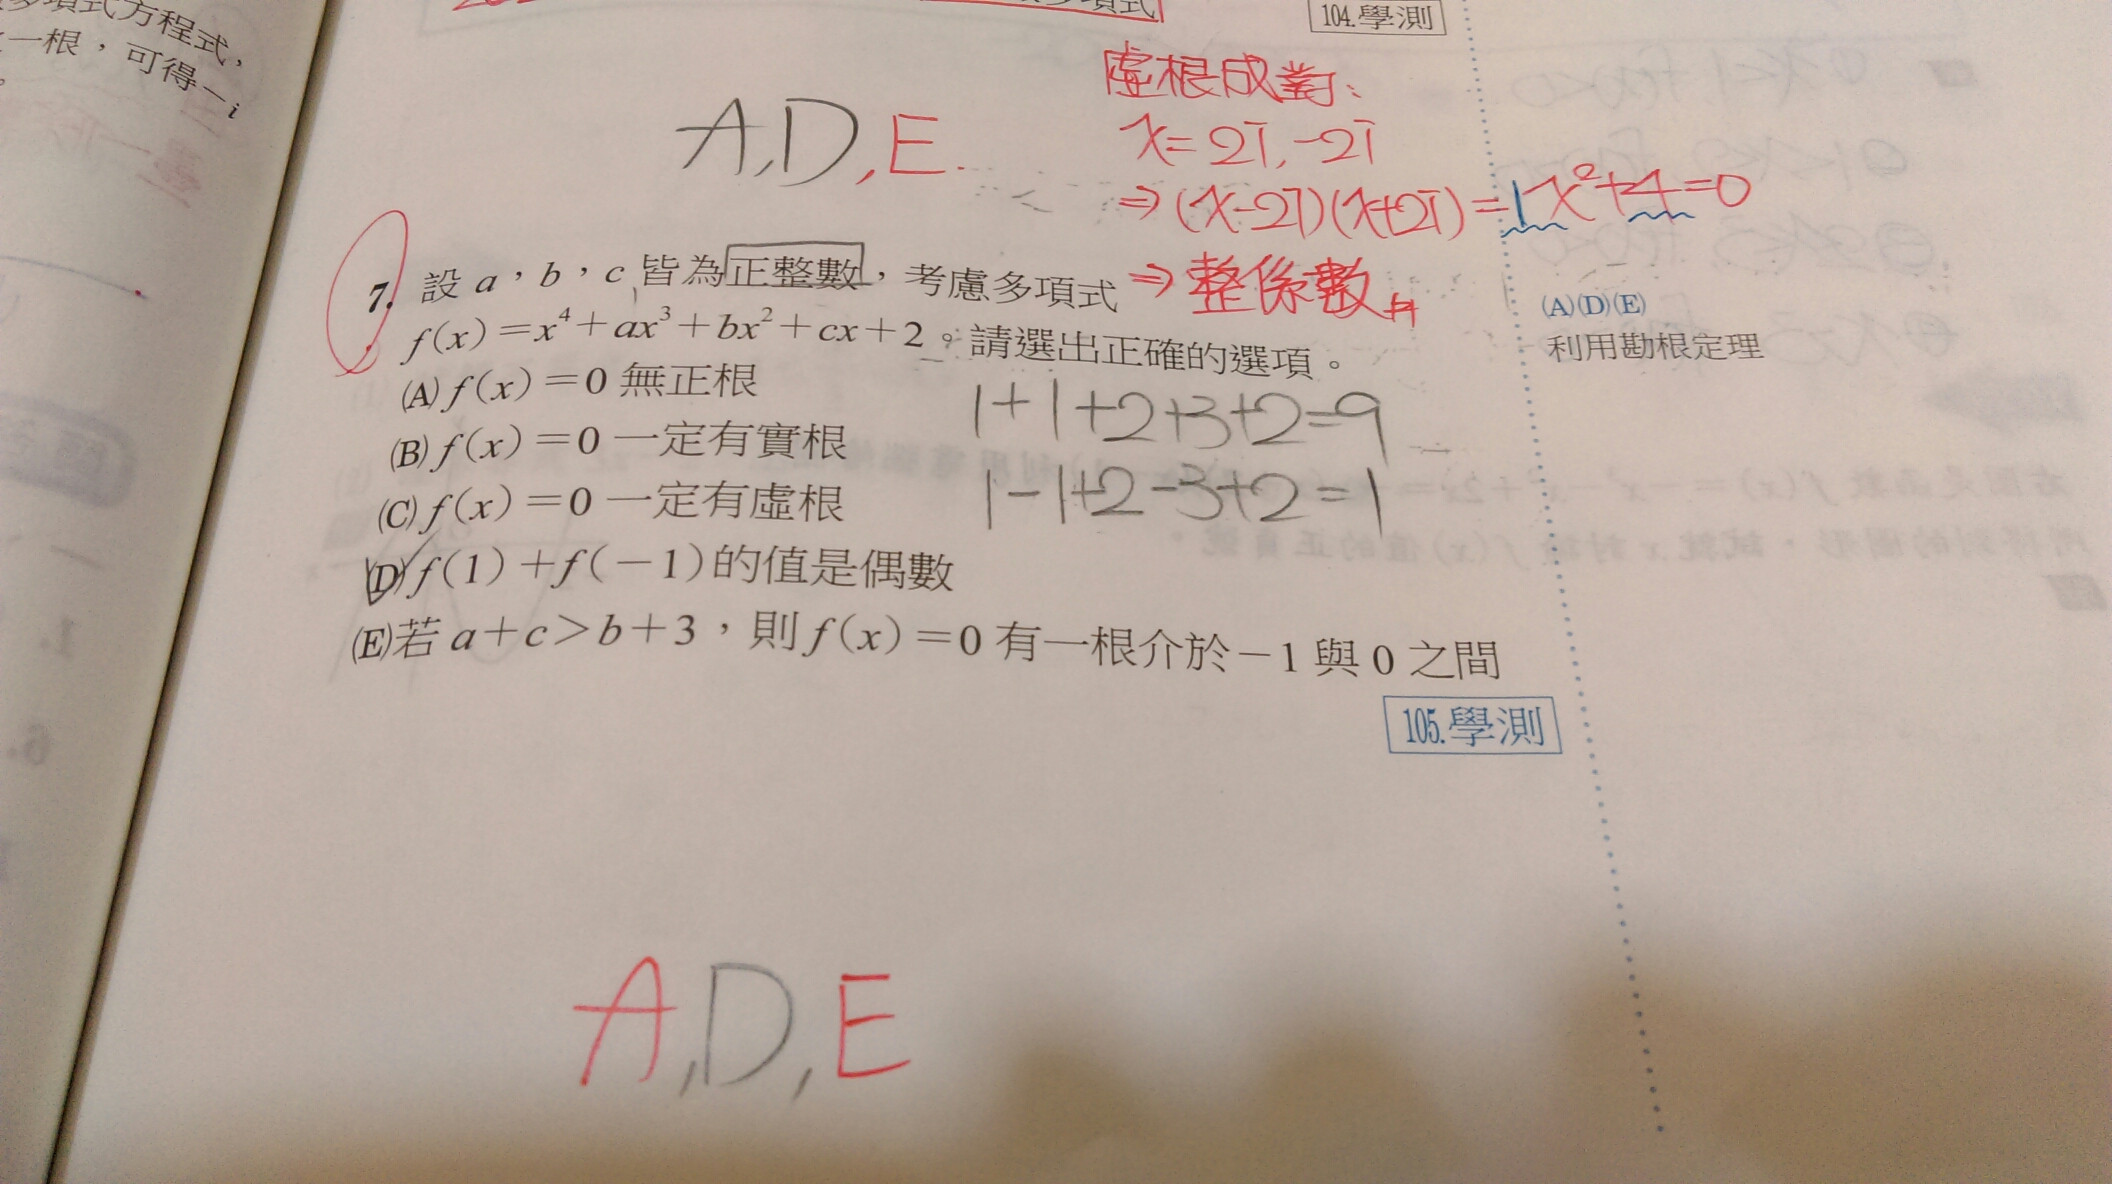 多項式方程式,
一根,可得-i
。
多項式
104.學測
虛根成對:
x=2i,-2i
⇒(x-2i)(x+2i)=1x²+4=0
⇒整係數
A,D,E.
7. 設 a,b,c 皆為正整數,考慮多項式
f(x)=x⁴+ax³+bx²+cx+2。請選出正確的選項。
(A) f(x)=0 無正根
(B) f(x)=0 一定有實根
(C) f(x)=0 一定有虛根
(D) f(1)+f(-1)的值是偶數
(E)若 a+c>b+3,則 f(x)=0 有一根介於-1 與 0 之間
105.學測
1+1+2+3+2=9
1-1+2-3+2=1
(A)(D)(E)
利用勘根定理
A,D,E